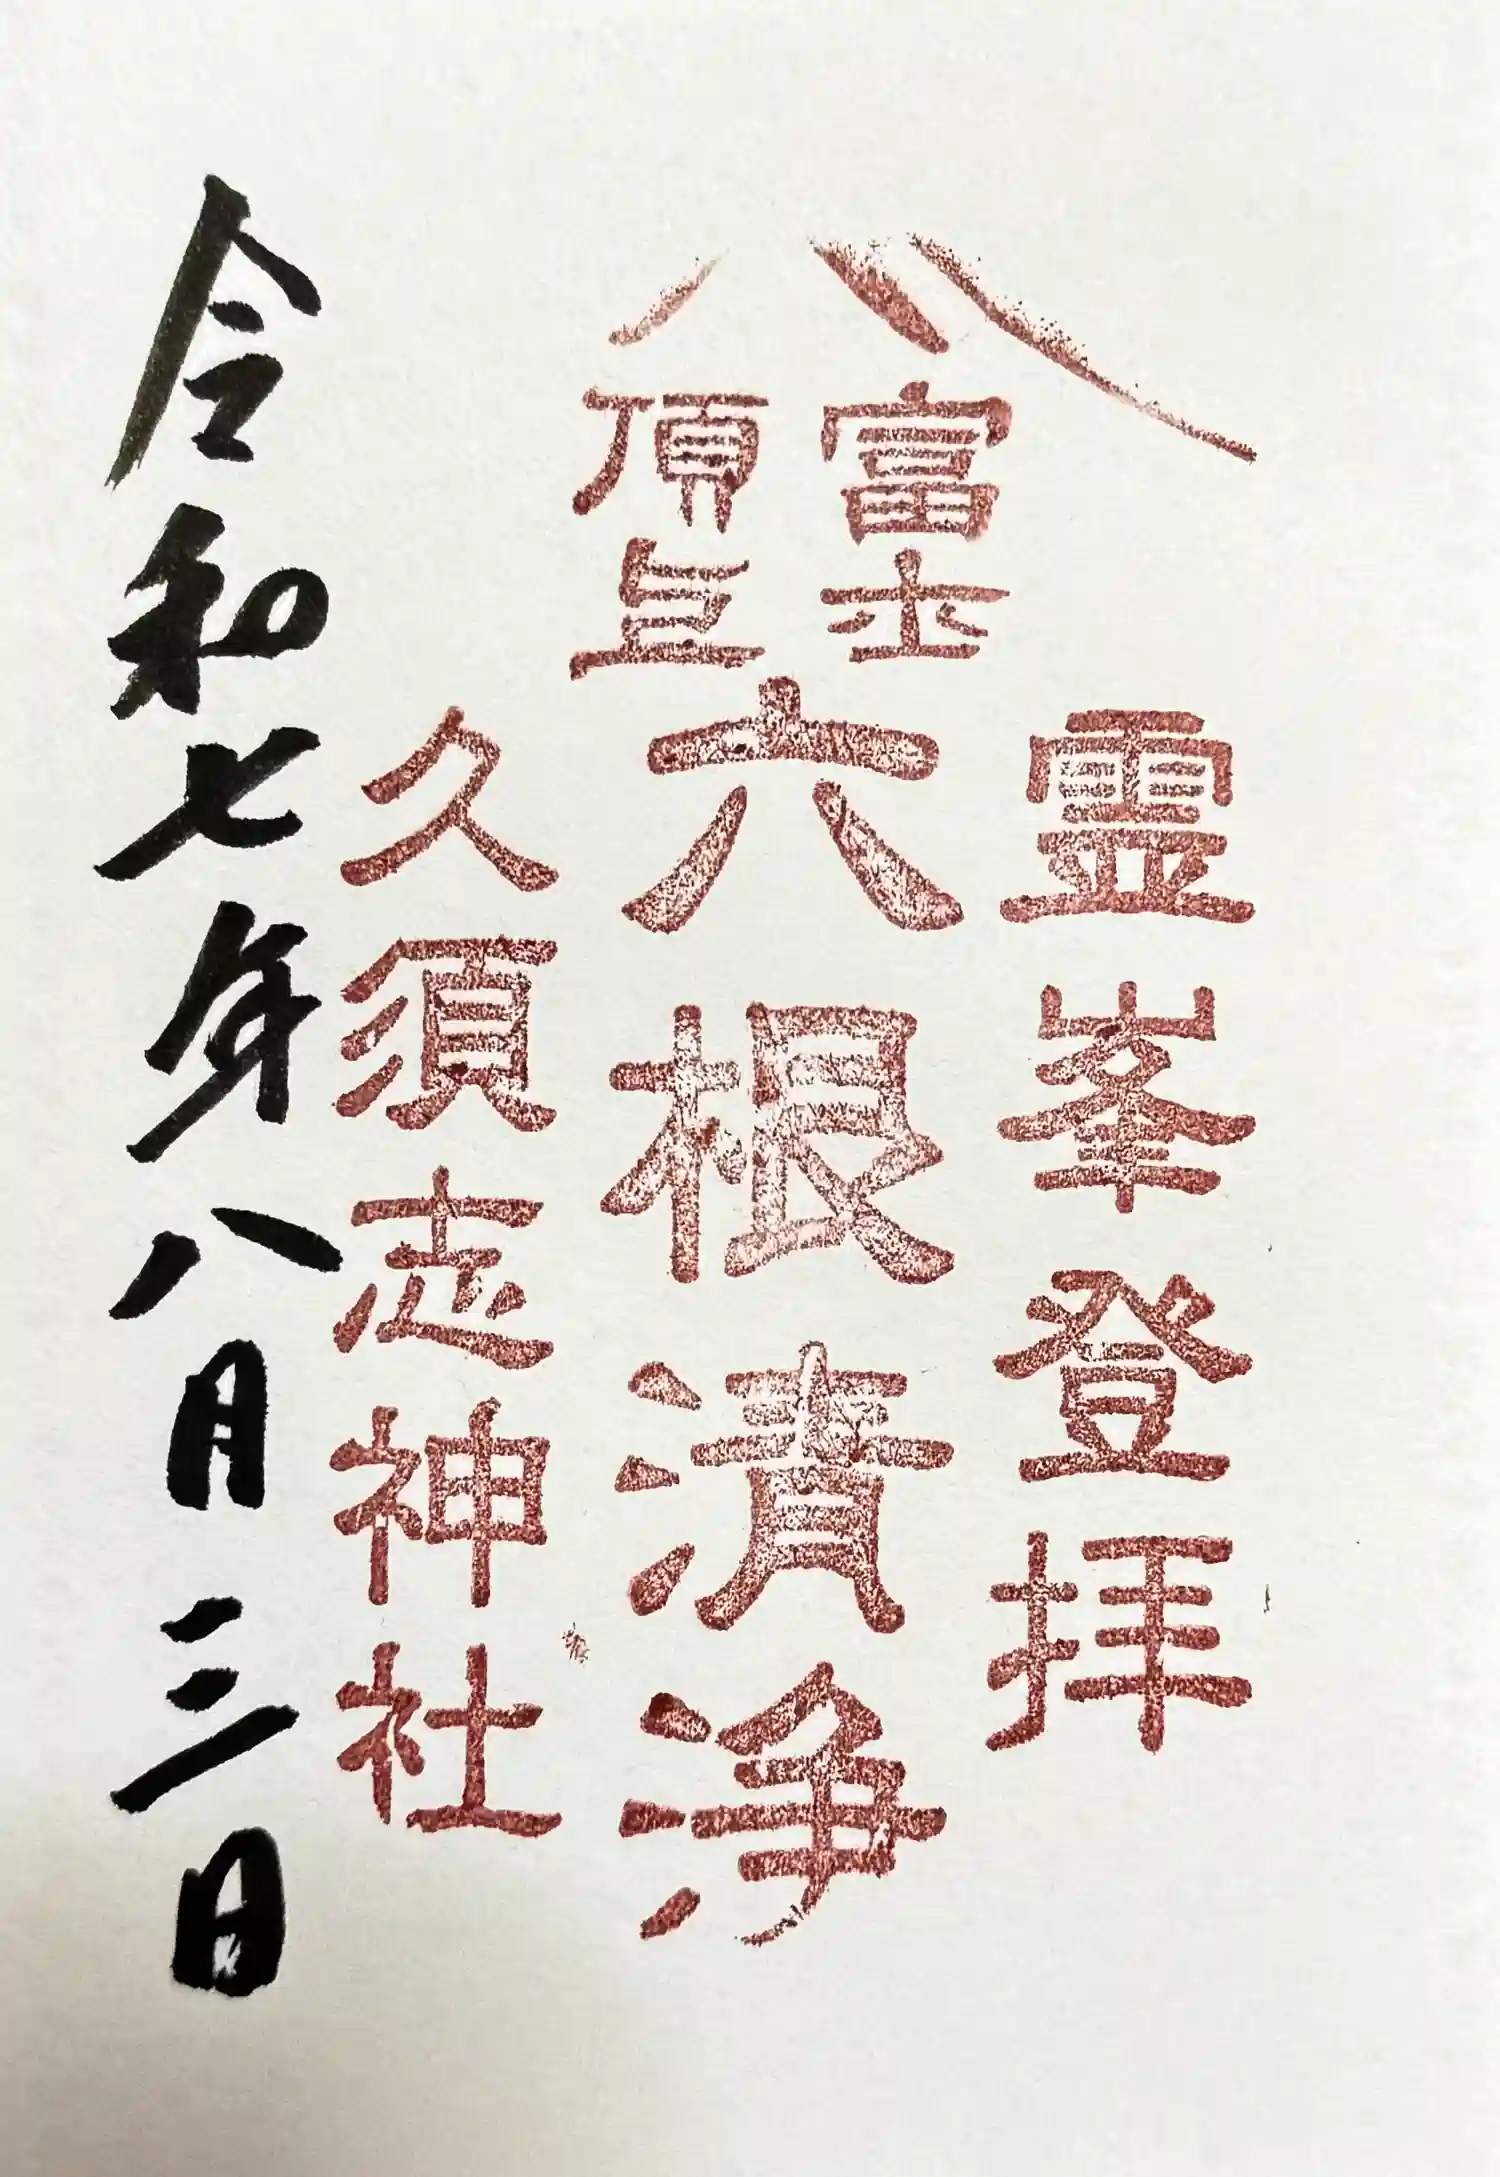 富士
頂上
霊峯登拝
六根清浄
久須志神社
令和七年八月三日